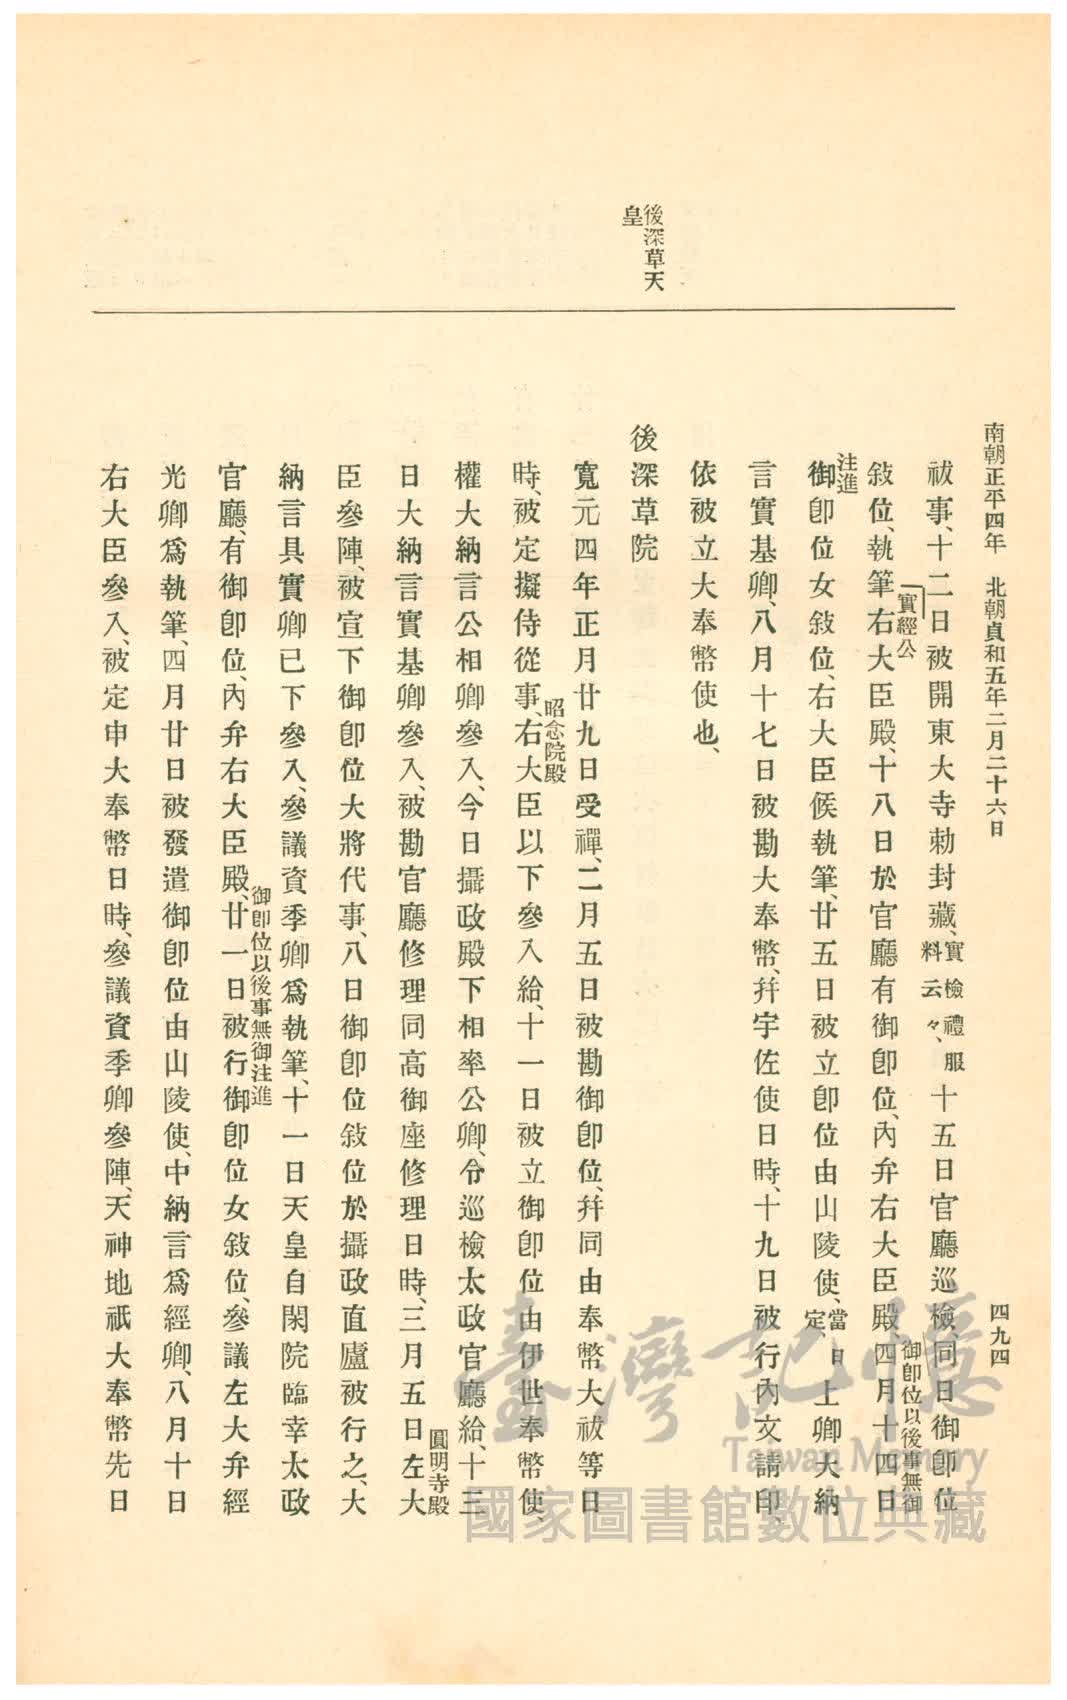 南朝正平四年　北朝貞和五年二月二十六日
四九四
後深草天
皇
祓事、十二日被開東大寺勅封藏、實檢禮服料云々、十五日官廳巡檢、同日御卽位
實經公
敍位、執筆右大臣殿、十八日於官廳有御卽位、內弁右大臣殿、四月十四日
御卽位以後事無御
注進
御卽位女敍位、右大臣候執筆、廿五日被立卽位由山陵使、當日定、上卿大納
言實基卿、八月十七日被勘大奉幣、幷宇佐使日時、十九日被行內文請印、
依被立大奉幣使也、
後深草院
寬元四年正月廿九日受禪、二月五日被勘御卽位、幷同由奉幣大祓等日
昭念院殿
時、被定擬侍從事、右大臣以下參入給、十一日被立御卽位由伊世奉幣使、
權大納言公相卿參入、今日攝政殿下相率公卿、令巡檢太政官廳給、十三
圓明寺殿
日大納言實基卿參入、被勘官廳修理同高御座修理日時、三月五日左大
臣參陣、被宣下御卽位大將代事、八日御卽位敍位於攝政直廬被行之、大
納言具實卿已下參入、參議資季卿爲執筆、十一日天皇自閑院臨幸太政
御卽位以後事無御注進
官廳、有御卽位、內弁右大臣殿、廿一日被行御卽位女敍位、參議左大弁經
光卿爲執筆、四月廿日被發遣御卽位由山陵使、中納言爲經卿、八月十日
右大臣參入、被定申大奉幣日時、參議資季卿參陣、天神地祇大奉幣先日
臺灣記憶
Taiwan Memory
國家圖書館數位典藏